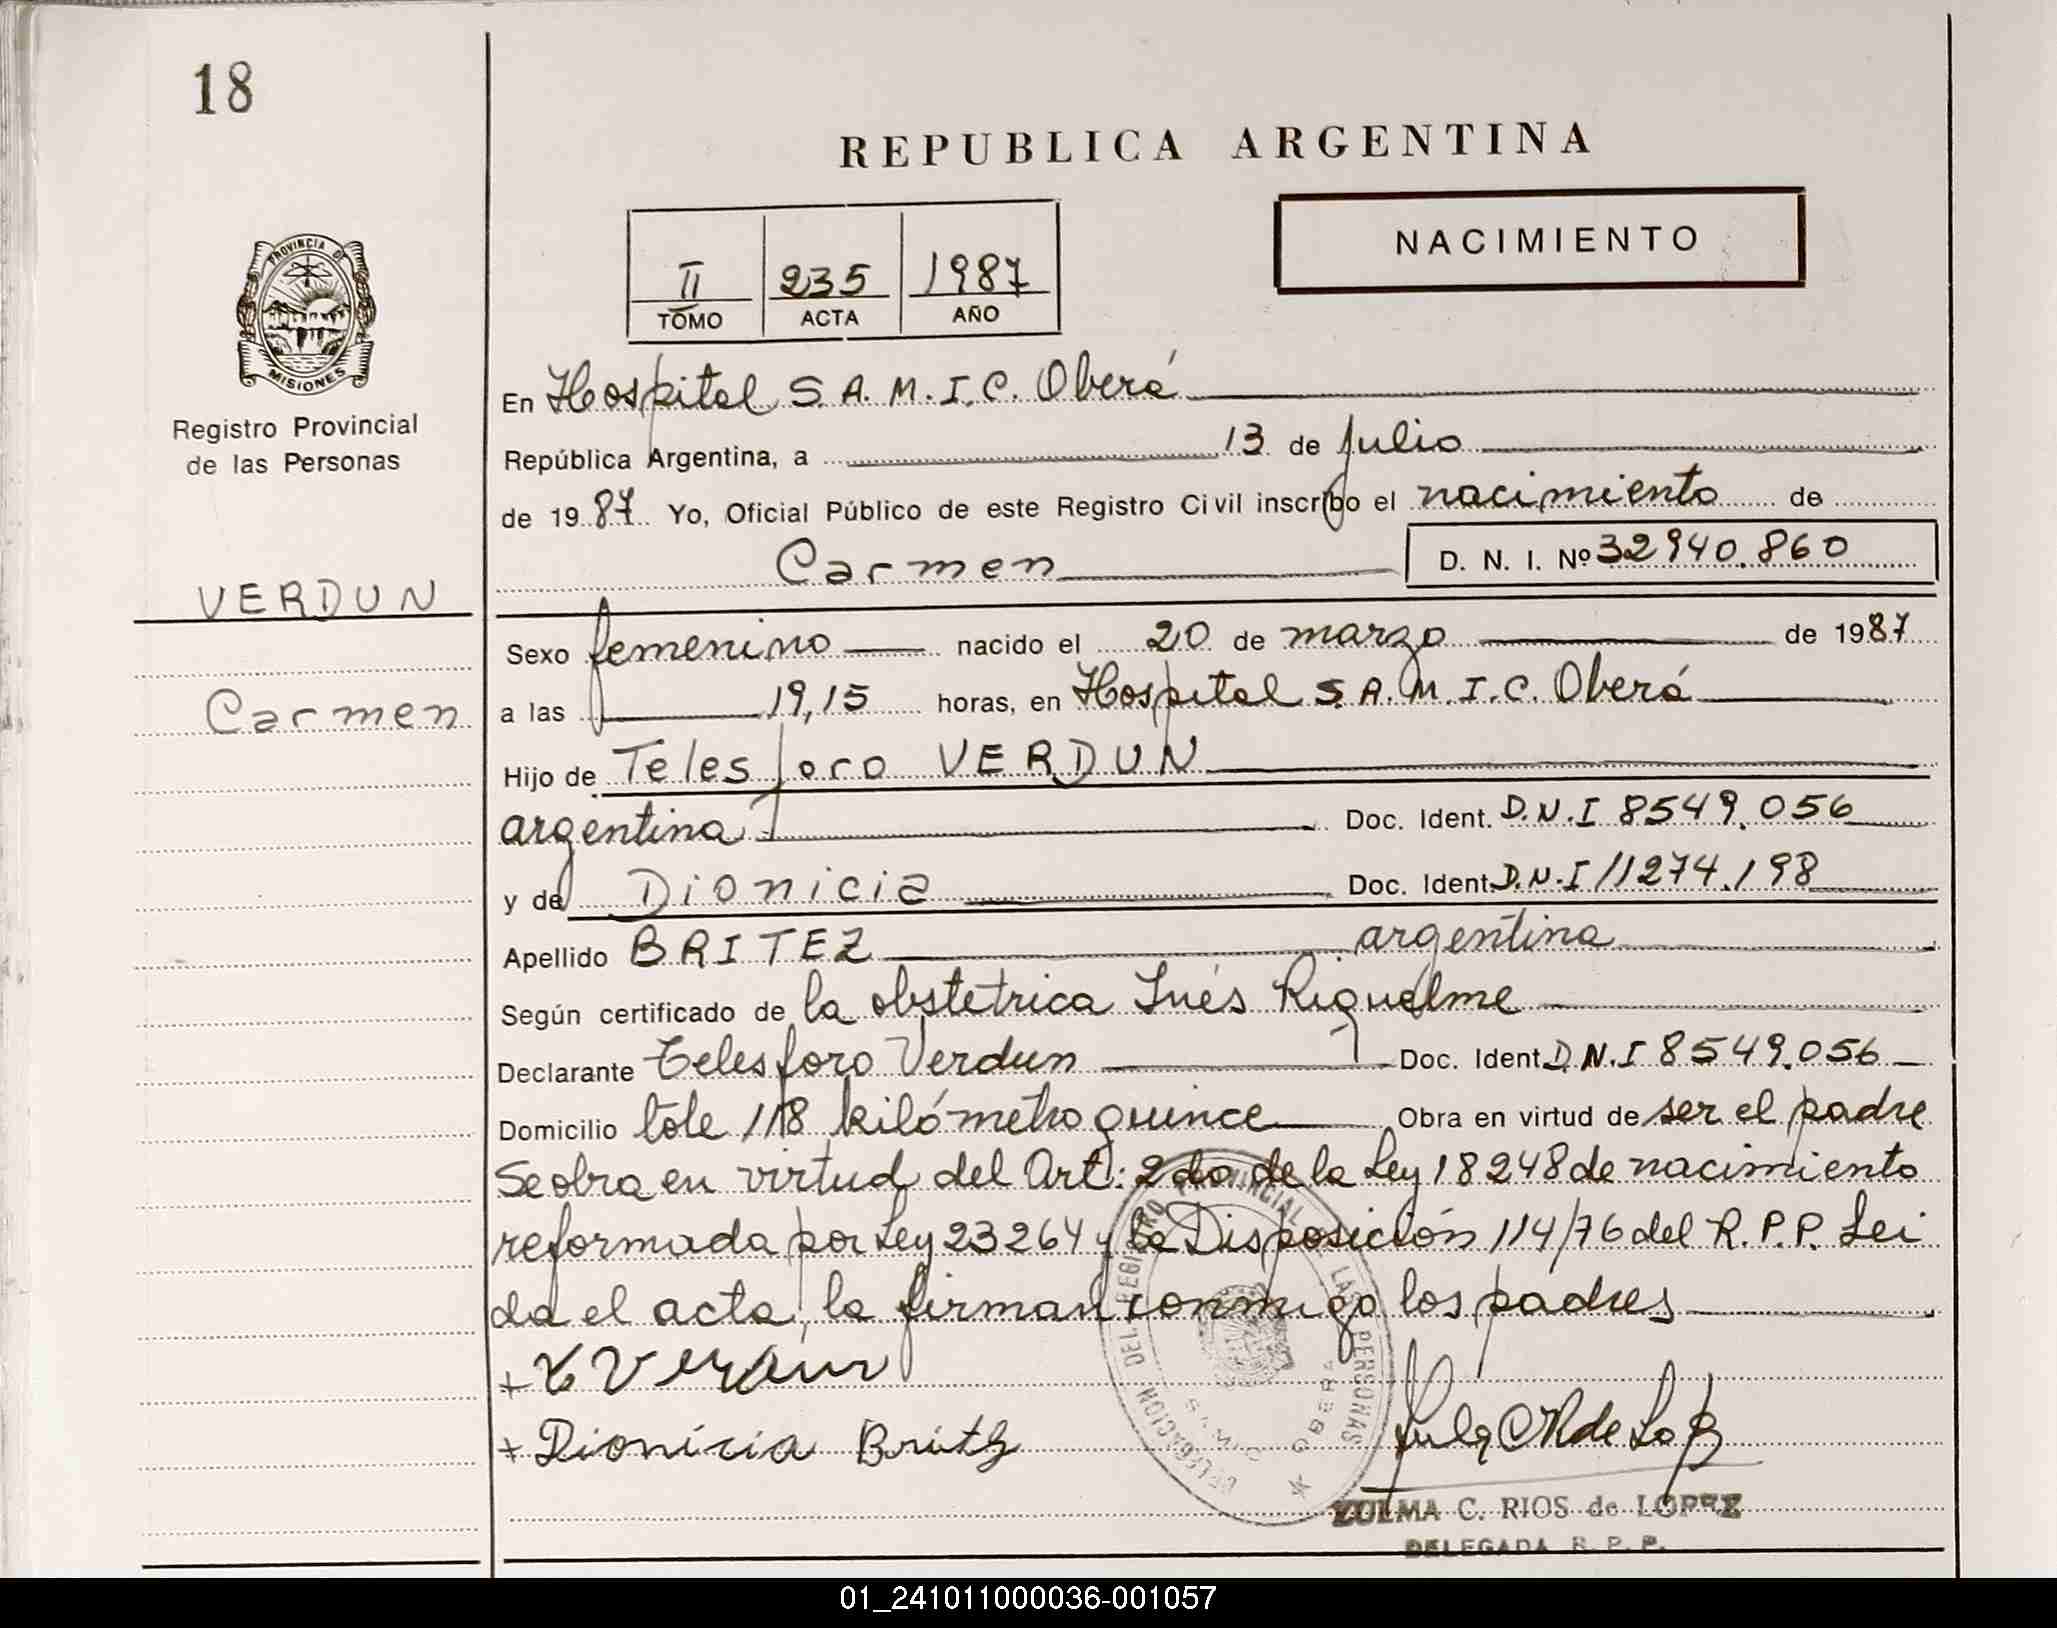 18
REPUBLICA ARGENTINA
NACIMIENTO
II 235 1987
TOMO ACTA AÑO
PROVINCIA DE
MISIONES
Registro Provincial
de las Personas
En Hospital S.A.M.I.C. Oberá
República Argentina, a 13 de julio
de 1987 Yo, Oficial Público de este Registro Civil inscribo el nacimiento de
Carmen D. N. I. Nº 32940.860
VERDUN
Carmen
Sexo femenino nacido el 20 de marzo de 1987
a las 19,15 horas, en Hospital S.A.M.I.C. Oberá
Hijo de Telesforo VERDUN
argentina Doc. Ident. D.N.I 8549.056
y de Dionicia Doc. Ident. D.N.I 11274.198
Apellido BRITEZ argentina
Según certificado de la obstetrica Inés Riquelme
Declarante Telesforo Verdun Doc. Ident. D.N.I 8549.056
Domicilio lote 118 kilómetro quince Obra en virtud de ser el padre
Se obra en virtud del Art: 2do de la Ley 18248 de nacimiento
reformada por Ley 23264 y la Disposición 114/76 del R.P.P. Lei
da el acta, la firman conmigo los padres
+ T Verdun
+ Dionicia Britez
DELEGACION DEL REGISTRO PROVINCIAL DE LAS PERSONAS
S.A.M.I.C. OBERA
ZULMA C. RIOS de LOPEZ
DELEGADA R. P. P.
01_241011000036-001057